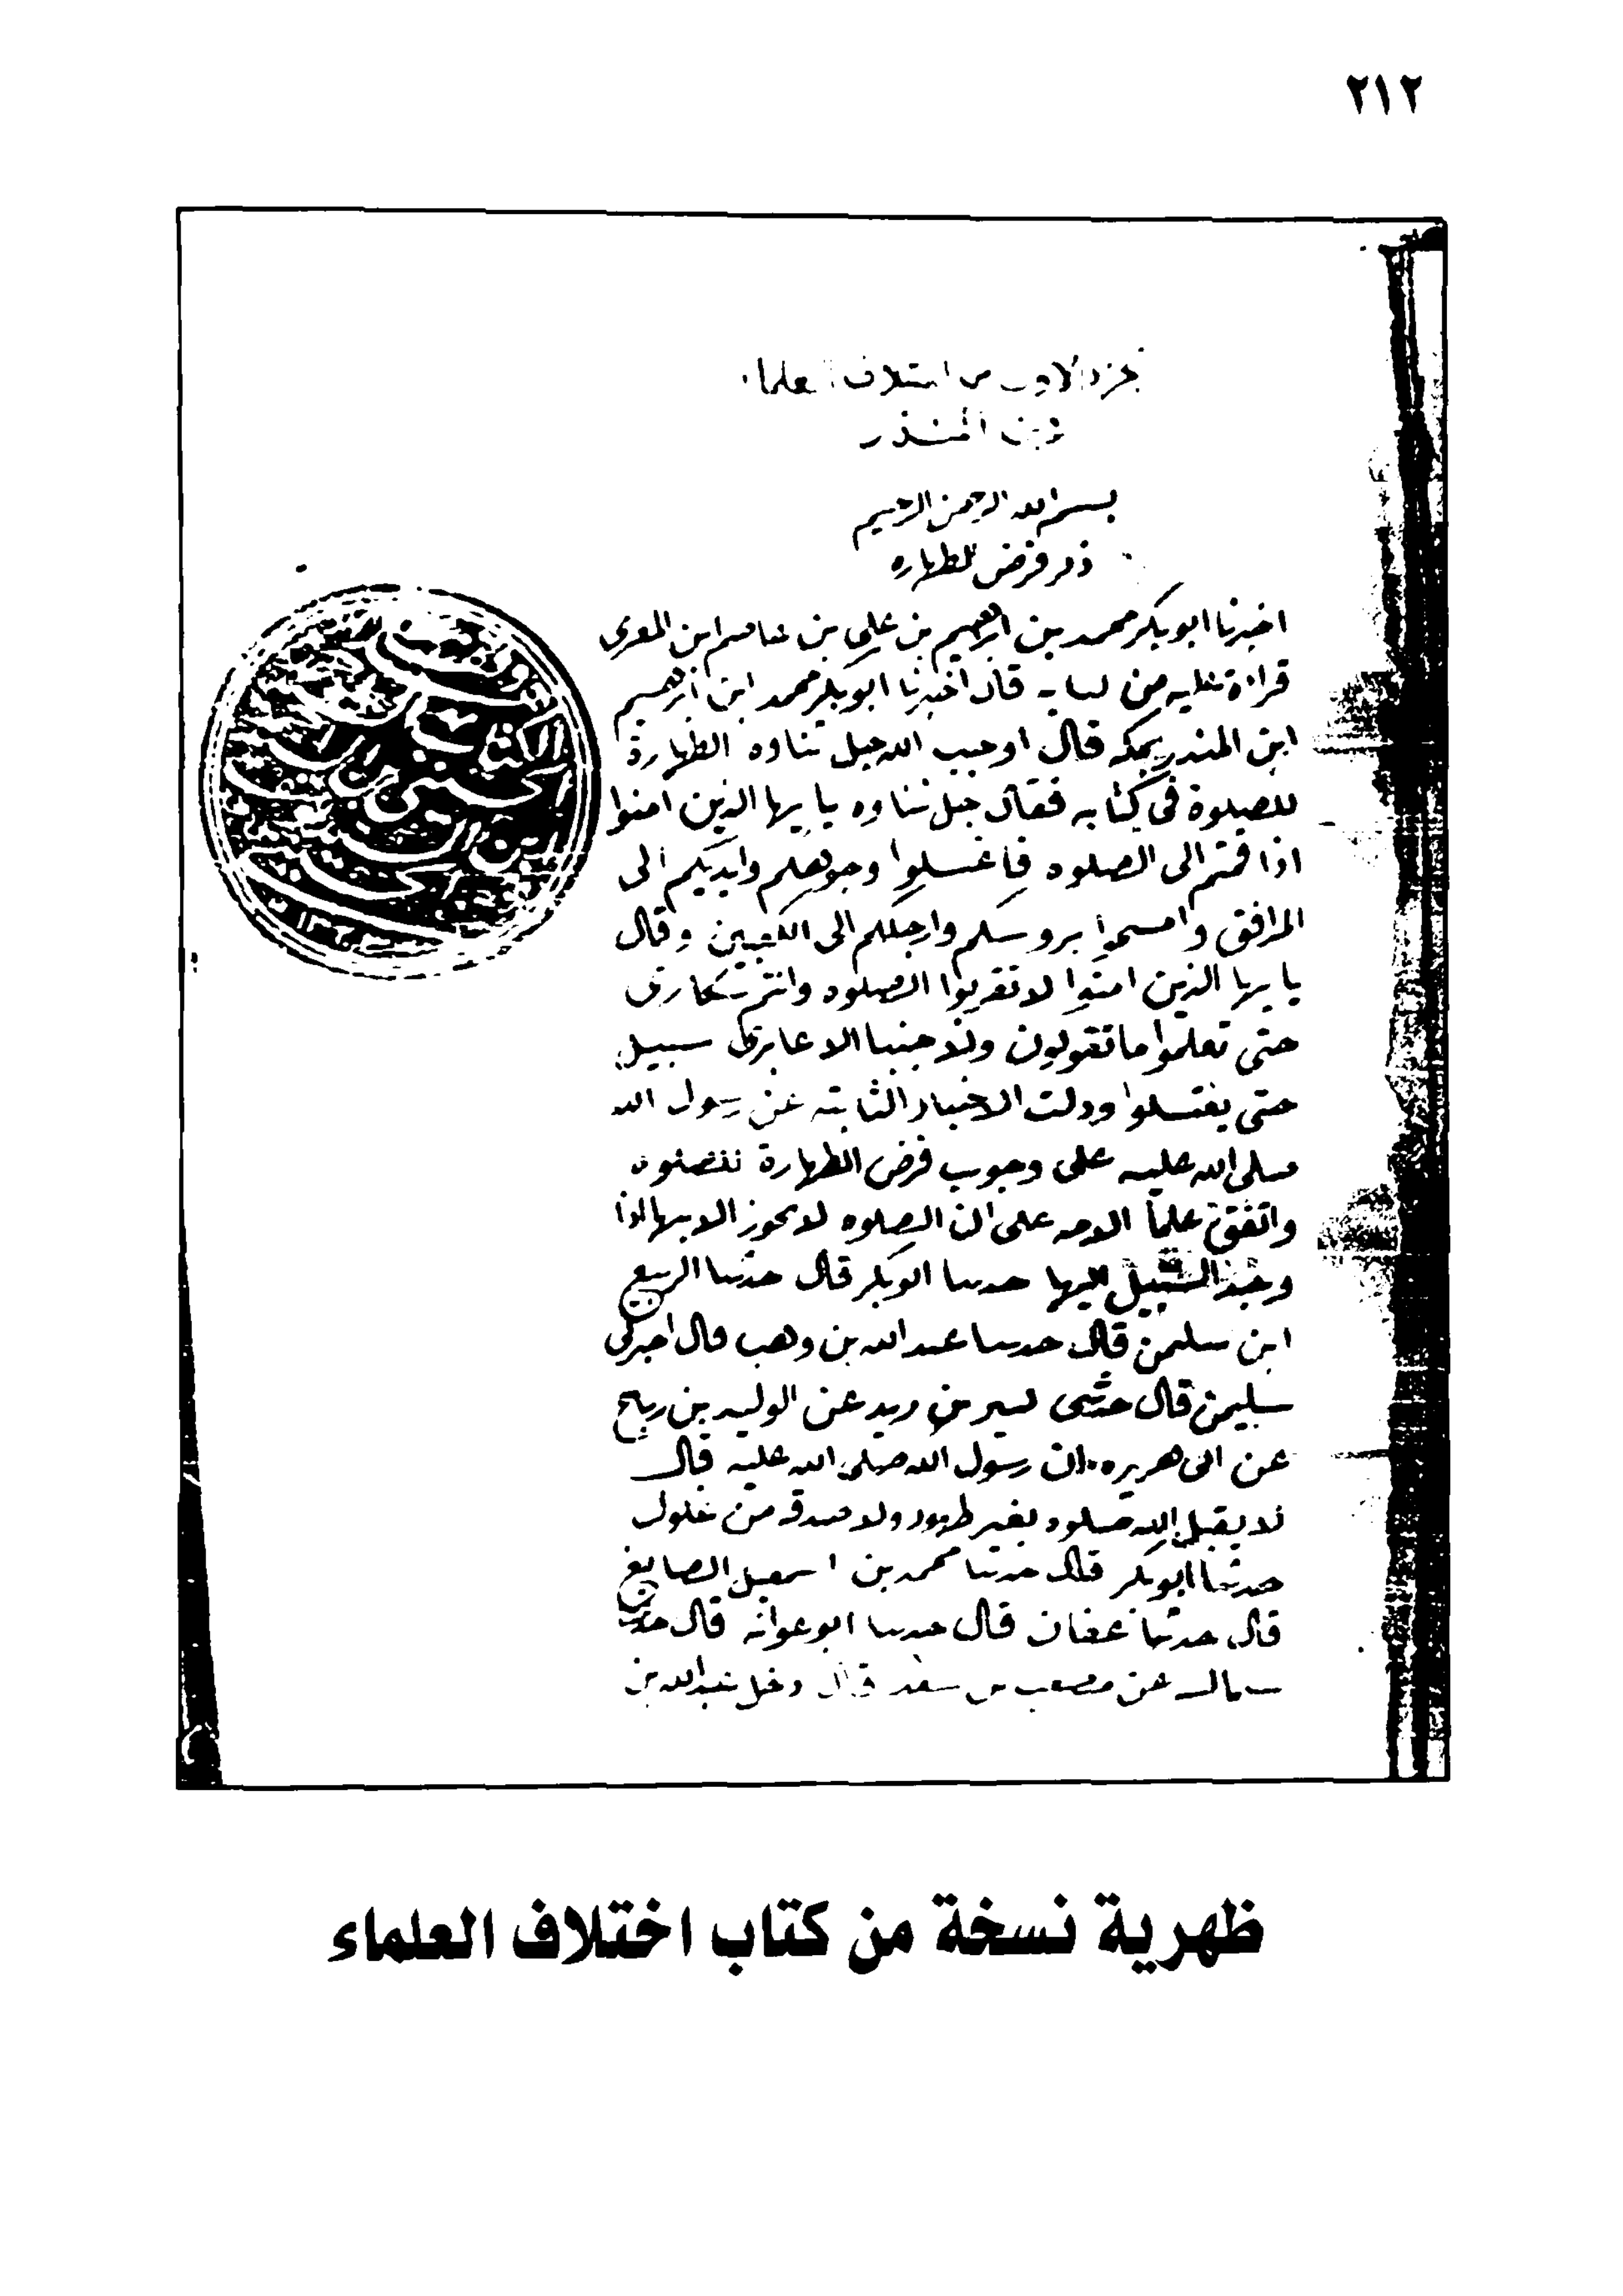 ٢١٢
الجزء الاول من اختلاف العلماء
لابن المنذر
بسم الله الرحمن الرحيم
ذكر فرض الطهاره
اخبرنا ابو بكر محمد بن ابرهيم بن علي بن عاصم ابن المقرى
قراءة عليه من كتابه قال اخبرنا ابو بكر محمد ابن ابرهيم
ابن المنذر بمكه قال اوجب الله جل ثناوه الطهارة
للصلوة في كتابه فقال جل ثناوه يايها الذين امنوا
اذا قمتم الى الصلوه فاغسلوا وجوهكم وايديكم الى
المرافق وامسحوا بروسكم وارجلكم الى الكعبين وقال
يايها الذين امنوا لا تقربوا الصلوه وانتم سكارى
حتى تعلموا ما تقولون ولا جنبا الا عابرى سبيل
حتى يغتسلوا ودلت الاخبار الثابته عن رسول الله
صلى الله عليه على وجوب فرض الطهارة للصلوه
واتفق علما الامه على ان الصلوه لا تجوز الا بها اذا
وجد السبيل اليها حدثنا ابو بكر قال حدثنا الربيع
ابن سليمن قال حدثنا عبد الله بن وهب قال اخبرنى
سليمن قال حدثنى كثير بن زيد عن الوليد بن رباح
عن ابى هريره ان رسول الله صلى الله عليه قال
لا يقبل الله صلوه بغير طهور ولا صدقه من غلول
حدثنا ابو بكر قال حدثنا محمد بن اسمعيل الصايغ
قال حدثنا عفان قال حدثنا ابو عوانه قال حدثنا
سماك عن مصعب بن سعد قال دخل عبد الله بن
ظهرية نسخة من كتاب اختلاف العلماء